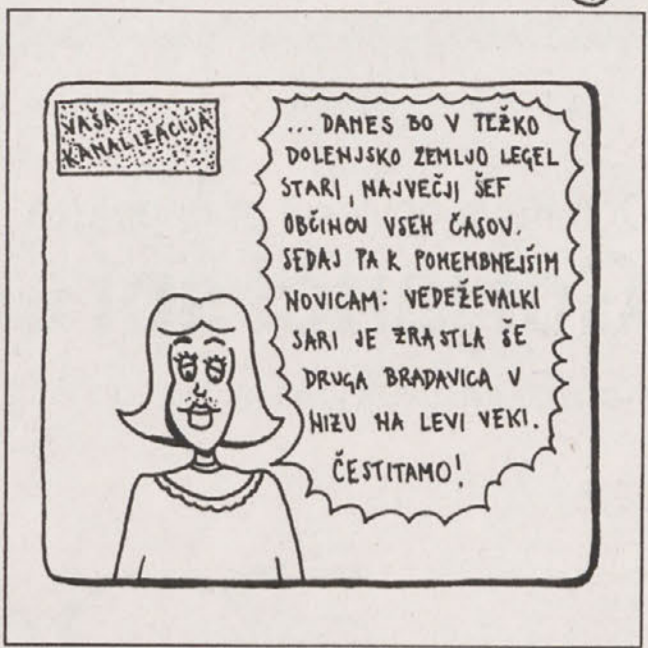 VAŠA
KANALIZACIJA
... DANES BO V TEŽKO
DOLENJSKO ZEMLJO LEGEL
STARI, NAJVEČJI ŠEF
OBČINOV VSEH ČASOV.
SEDAJ PA K POMEMBNEJŠIM
NOVICAM: VEDEŽEVALKI
SARI JE ZRASTLA ŠE
DRUGA BRADAVICA V
NIZU NA LEVI VEKI.
ČESTITAMO!